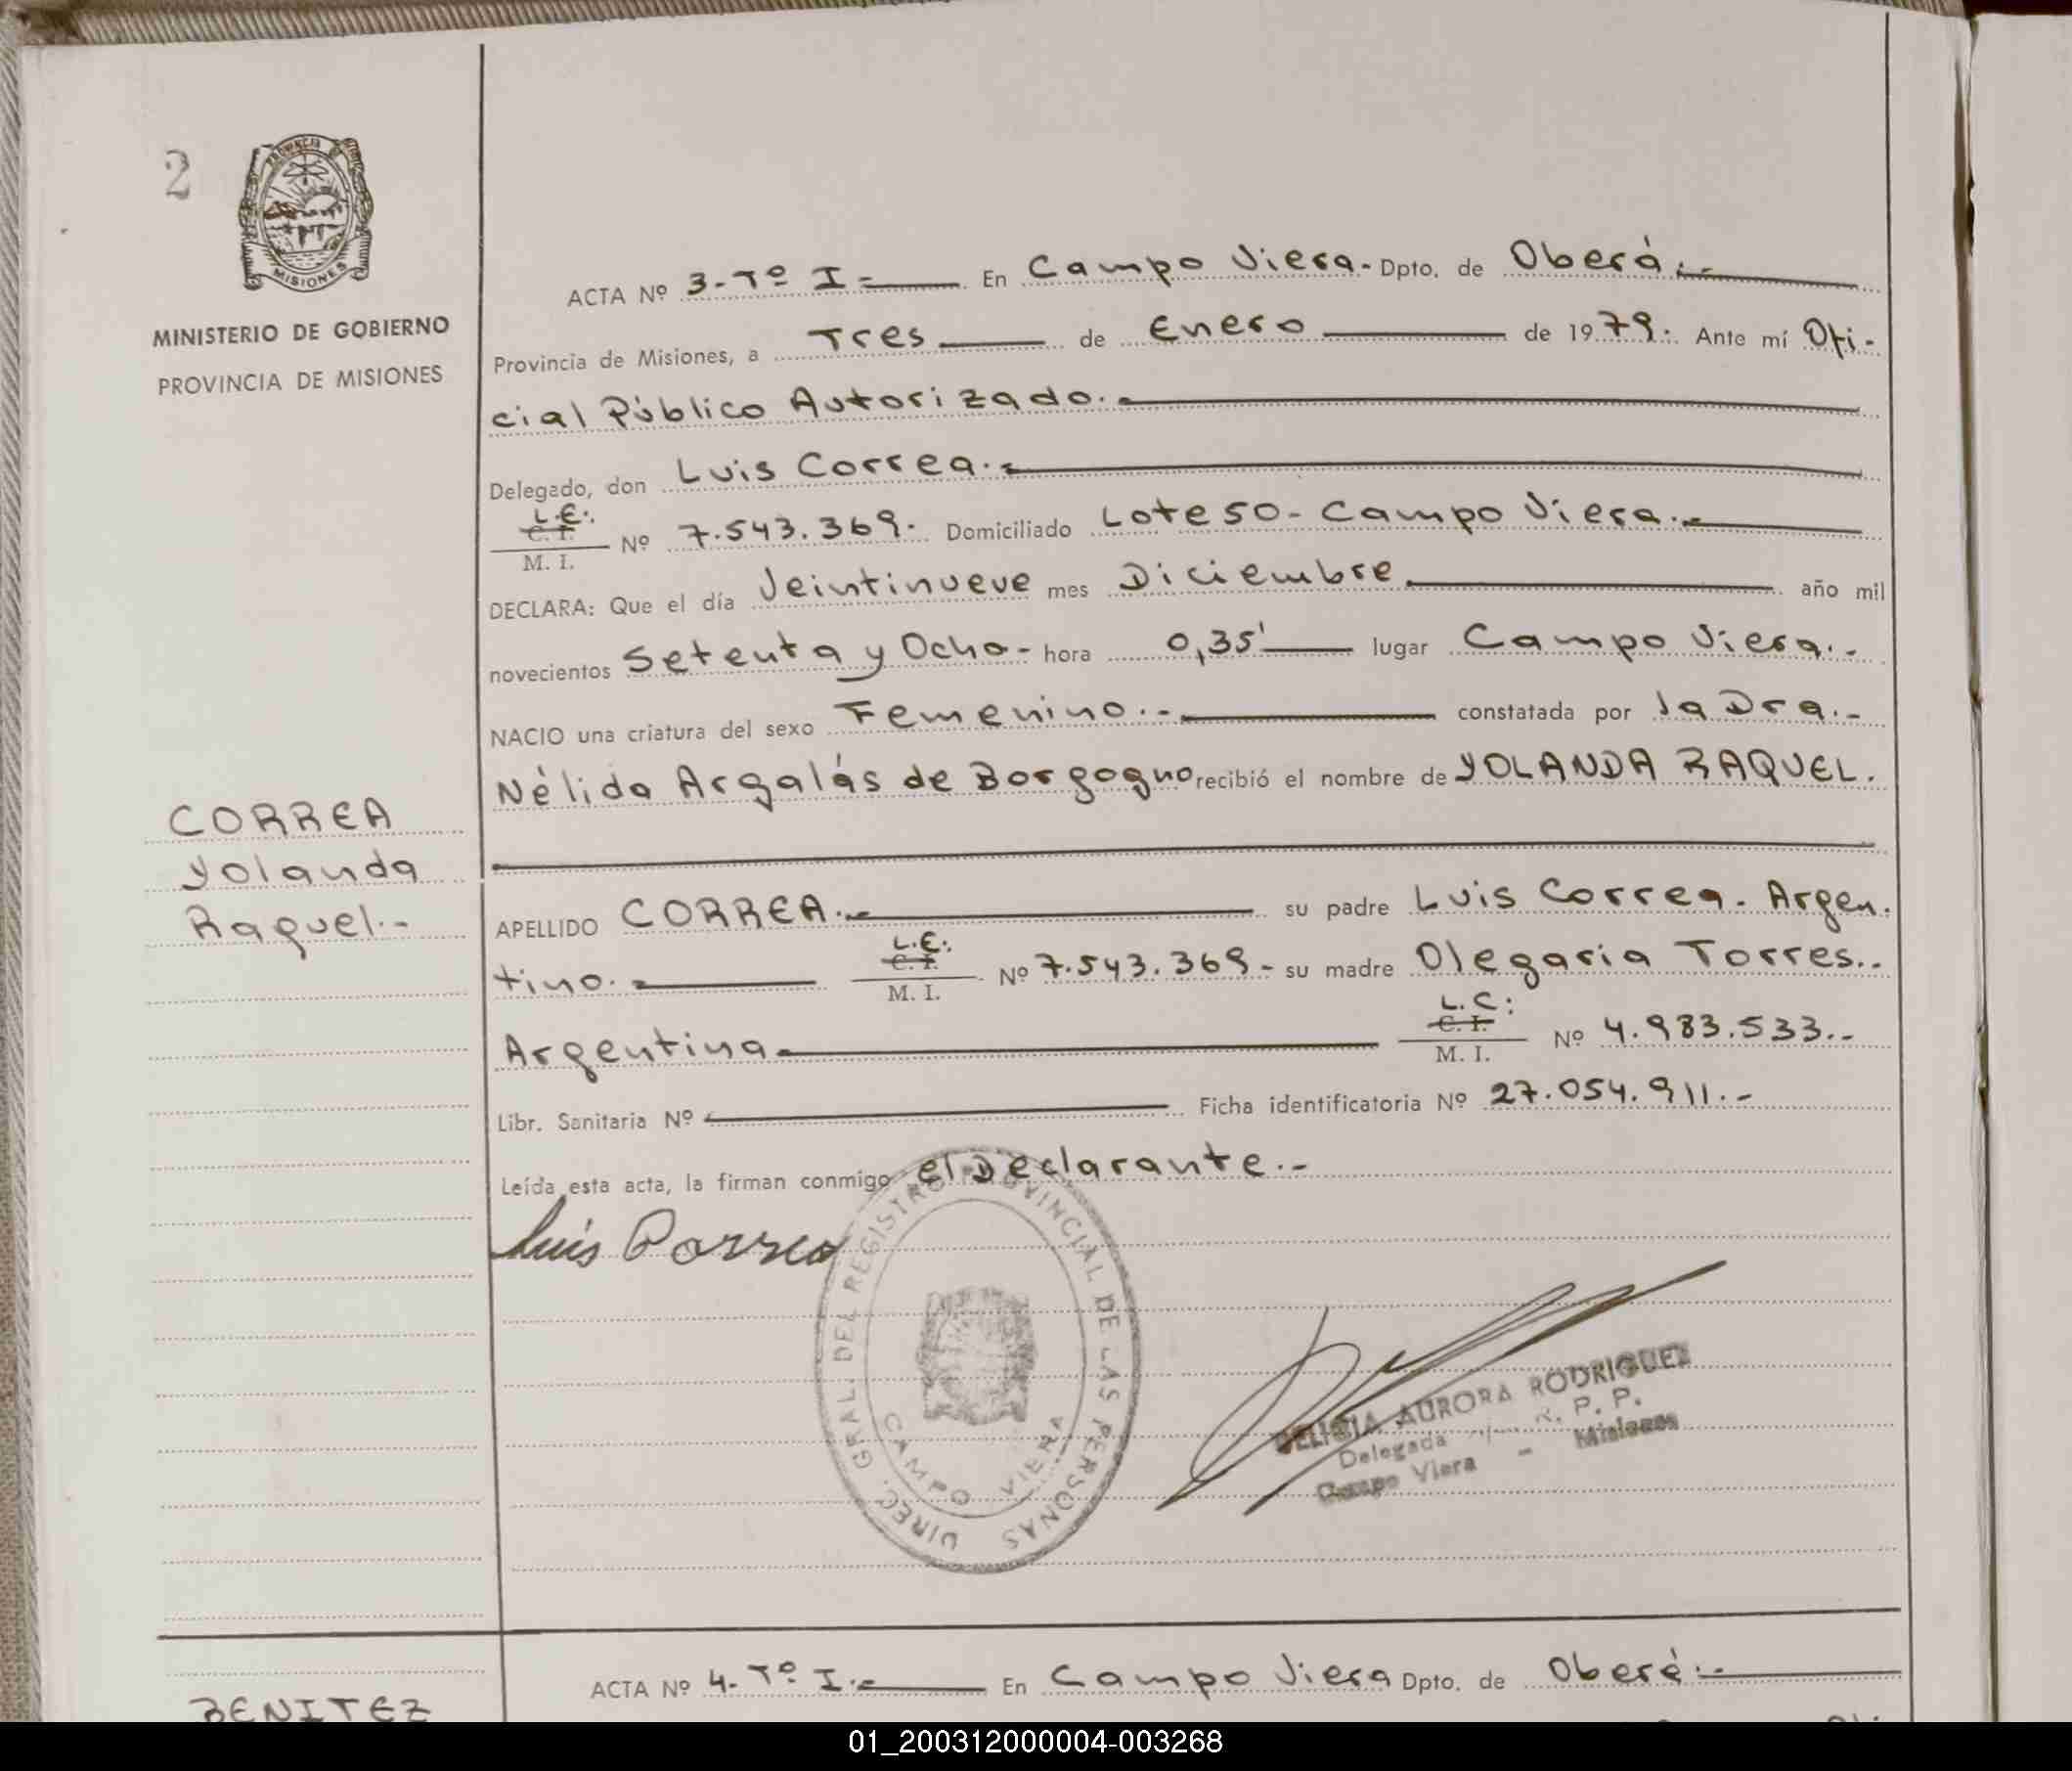 2
PROVINCIA
MISIONES
MINISTERIO DE GOBIERNO
PROVINCIA DE MISIONES
CORREA
Yolanda
Raquel.-
ACTA Nº 3-Tº I.- En Campo Viera.- Dpto. de Oberá.-
Provincia de Misiones, a Tres de Enero de 1979.- Ante mí Ofi-
cial Público Autorizado.-
Delegado, don Luis Correa.-
L.E.:
C. I.
M. I. Nº 7.543.369.- Domiciliado Lote 50- Campo Viera.-
DECLARA: Que el día Veintinueve mes Diciembre año mil
novecientos Setenta y Ocho- hora 0,35' lugar Campo Viera.-
NACIO una criatura del sexo Femenino.- constatada por la Dra.-
Nélida Argalás de Borgogno recibió el nombre de YOLANDA RAQUEL.
APELLIDO CORREA.- su padre Luis Correa. Argen.
tino.- L.E.: C. I. M. I. Nº 7.543.369- su madre Olegaria Torres..
Argentina- L.C.: C. I. M. I. Nº 4.983.533.-
Libr. Sanitaria Nº Ficha identificatoria Nº 27.054.911.-
Leída esta acta, la firman conmigo el Declarante.-
Luis Correa
DIREC. GRAL. DEL REGISTRO PROVINCIAL DE LAS PERSONAS
CAMPO VIERA
DELICIA AURORA RODRIGUEZ
Delegada R. P. P.
Campo Viera - Misiones
BENITEZ
ACTA Nº 4-Tº I.- En Campo Viera Dpto. de Oberá.-
01_200312000004-003268